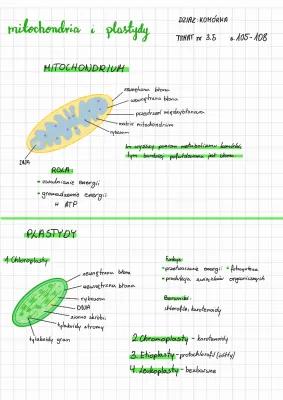 mitochondria i plastydy
DZIAŁ: KOMÓRKA
TEMAT nr 3.5 s. 105-108
MITOCHONDRIUM
zewnętrzna błona
wewnętrzna błona
przestrzeń międzybłonowa
matrix mitochondrium
rybosom
DNA
im wyższy poziom metabolizmu komórki
tym bardziej pofałdowana jest błona
ROLA
• uwalnianie energii
• gromadzenie energii
w ATP
PLASTYDY
1. Chloroplasty
zewnętrzna błona
wewnętrzna błona
rybosom
DNA
ziarno skrobi
tylakoidy stromy
tylakoidy gran
Funkcje
• przetwarzanie energii • fotosynteza
• produkcja związków organicznych
Barwniki:
chlorofile, karotenoidy
2. Chromoplasty - karotenoidy
3. Etioplasty - protochlorofil (żółty)
4. Leukoplasty - bezbarwne